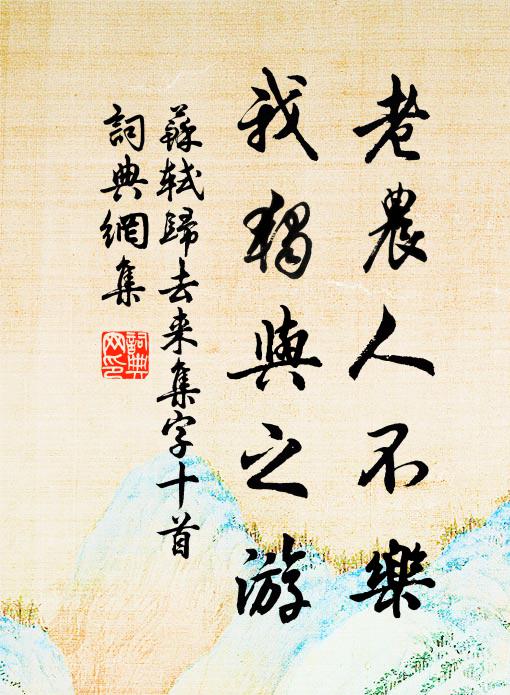 老農人不樂
我獨與之游
蘇軾歸去来集字十首
詞典網集
詞典网印